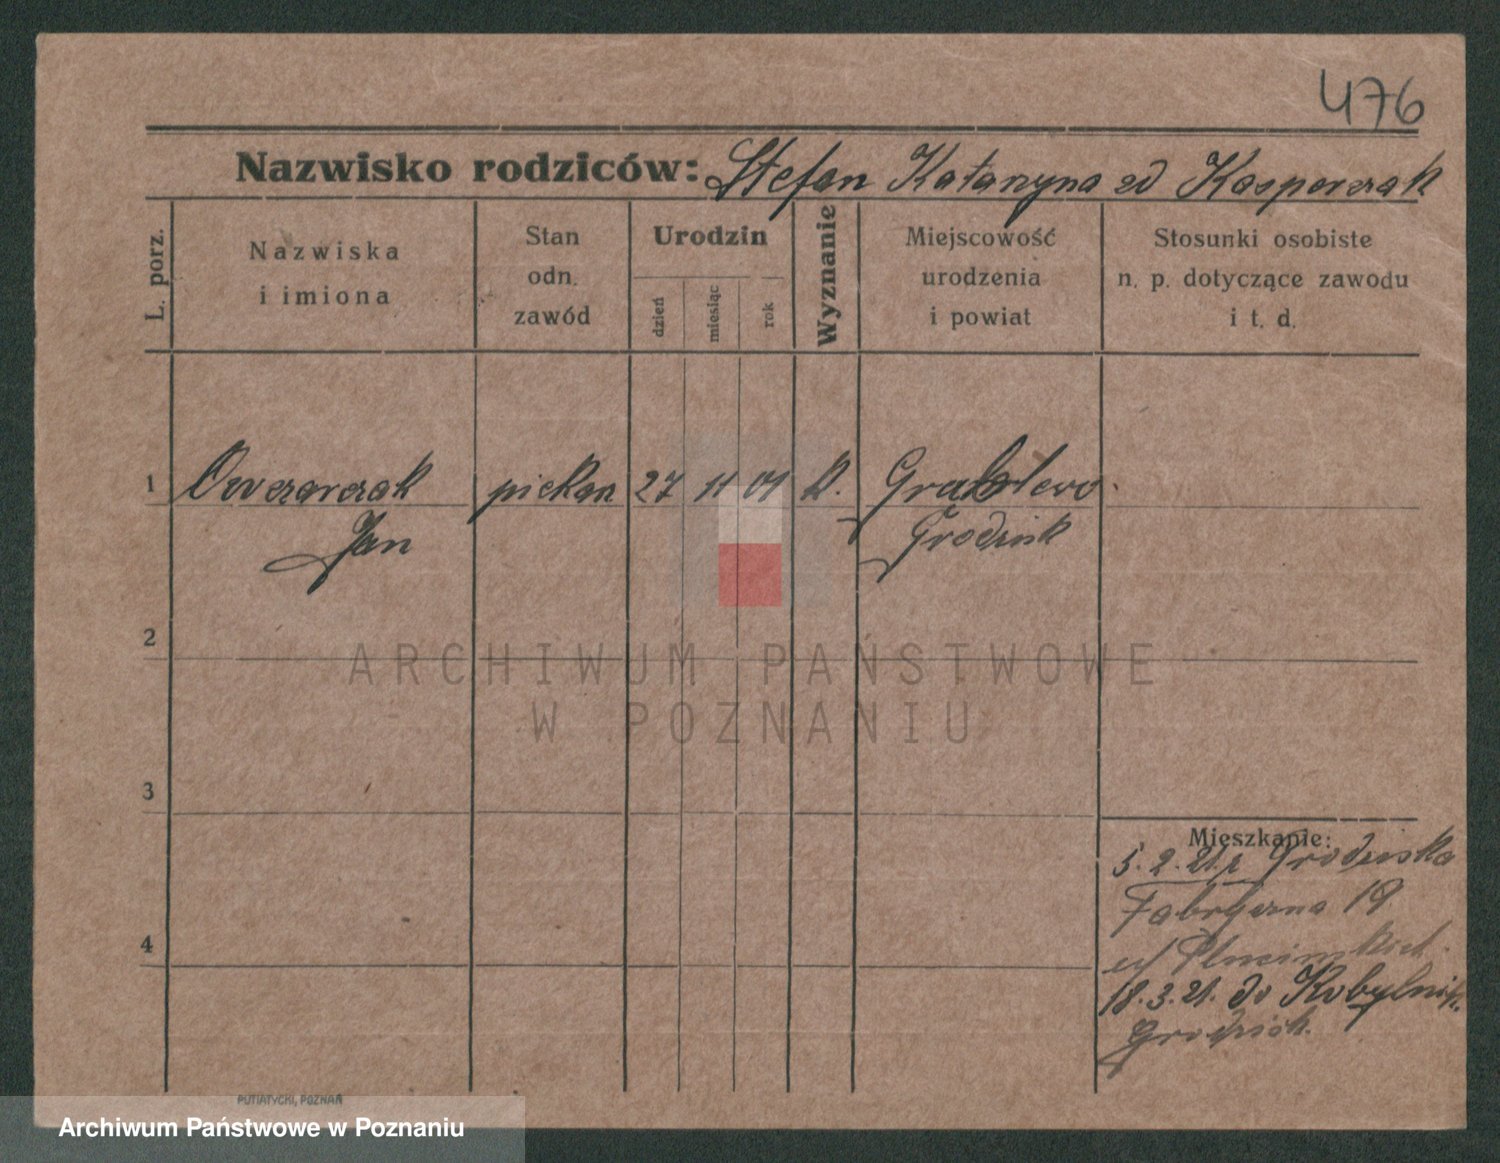 476
Nazwisko rodziców: Stefan Katarzyna zd Kasperczak
L. porz.
Nazwiska
i imiona
Stan
odn.
zawód
Urodzin
dzień
miesiąc
rok
Wyznanie
Miejscowość
urodzenia
i powiat
Stosunki osobiste
n. p. dotyczące zawodu
i t. d.
1 Owczarczak piekarz 27 11 01 K.
Jan Grodzisk
2
3
4
Mieszkanie:
5.2.21. z Grodziska
Fabryczna 19
18.3.21. do Kobylnik
Grodzisk.
PUTIATYCKI, POZNAŃ
ARCHIWUM PAŃSTWOWE
W POZNANIU
Archiwum Państwowe w Poznaniu